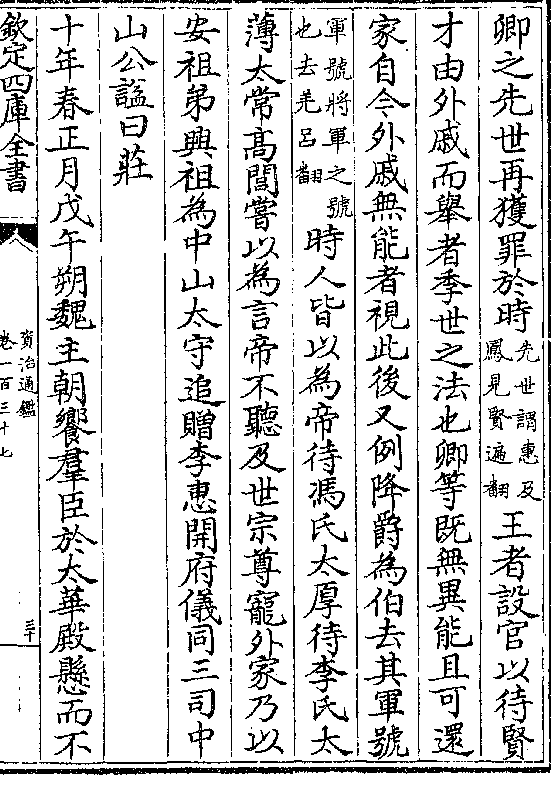 卿之先世再獲罪於時先世謂惠及鳳見賢遍翻王者設官以待賢
才由外戚而舉者季世之法也卿等既無異能且可還
家自今外戚無能者視此後又例降爵為伯去其軍號
軍號將軍之號也去羌呂翻時人皆以為帝待馮氏太厚待李氏太
薄太常髙閭嘗以為言帝不聽及世宗尊寵外家乃以
安祖弟興祖為中山太守追贈李惠開府儀同三司中
山公諡曰莊
十年春正月戊午朔魏主朝饗羣臣於太華殿懸而不
欽定四庫全書
資治通鑑
卷一百三十七
三十